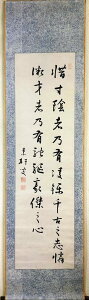 惜寸陰者乃有凌鑠千古之志憐
微才者乃有馳驅豪傑之心